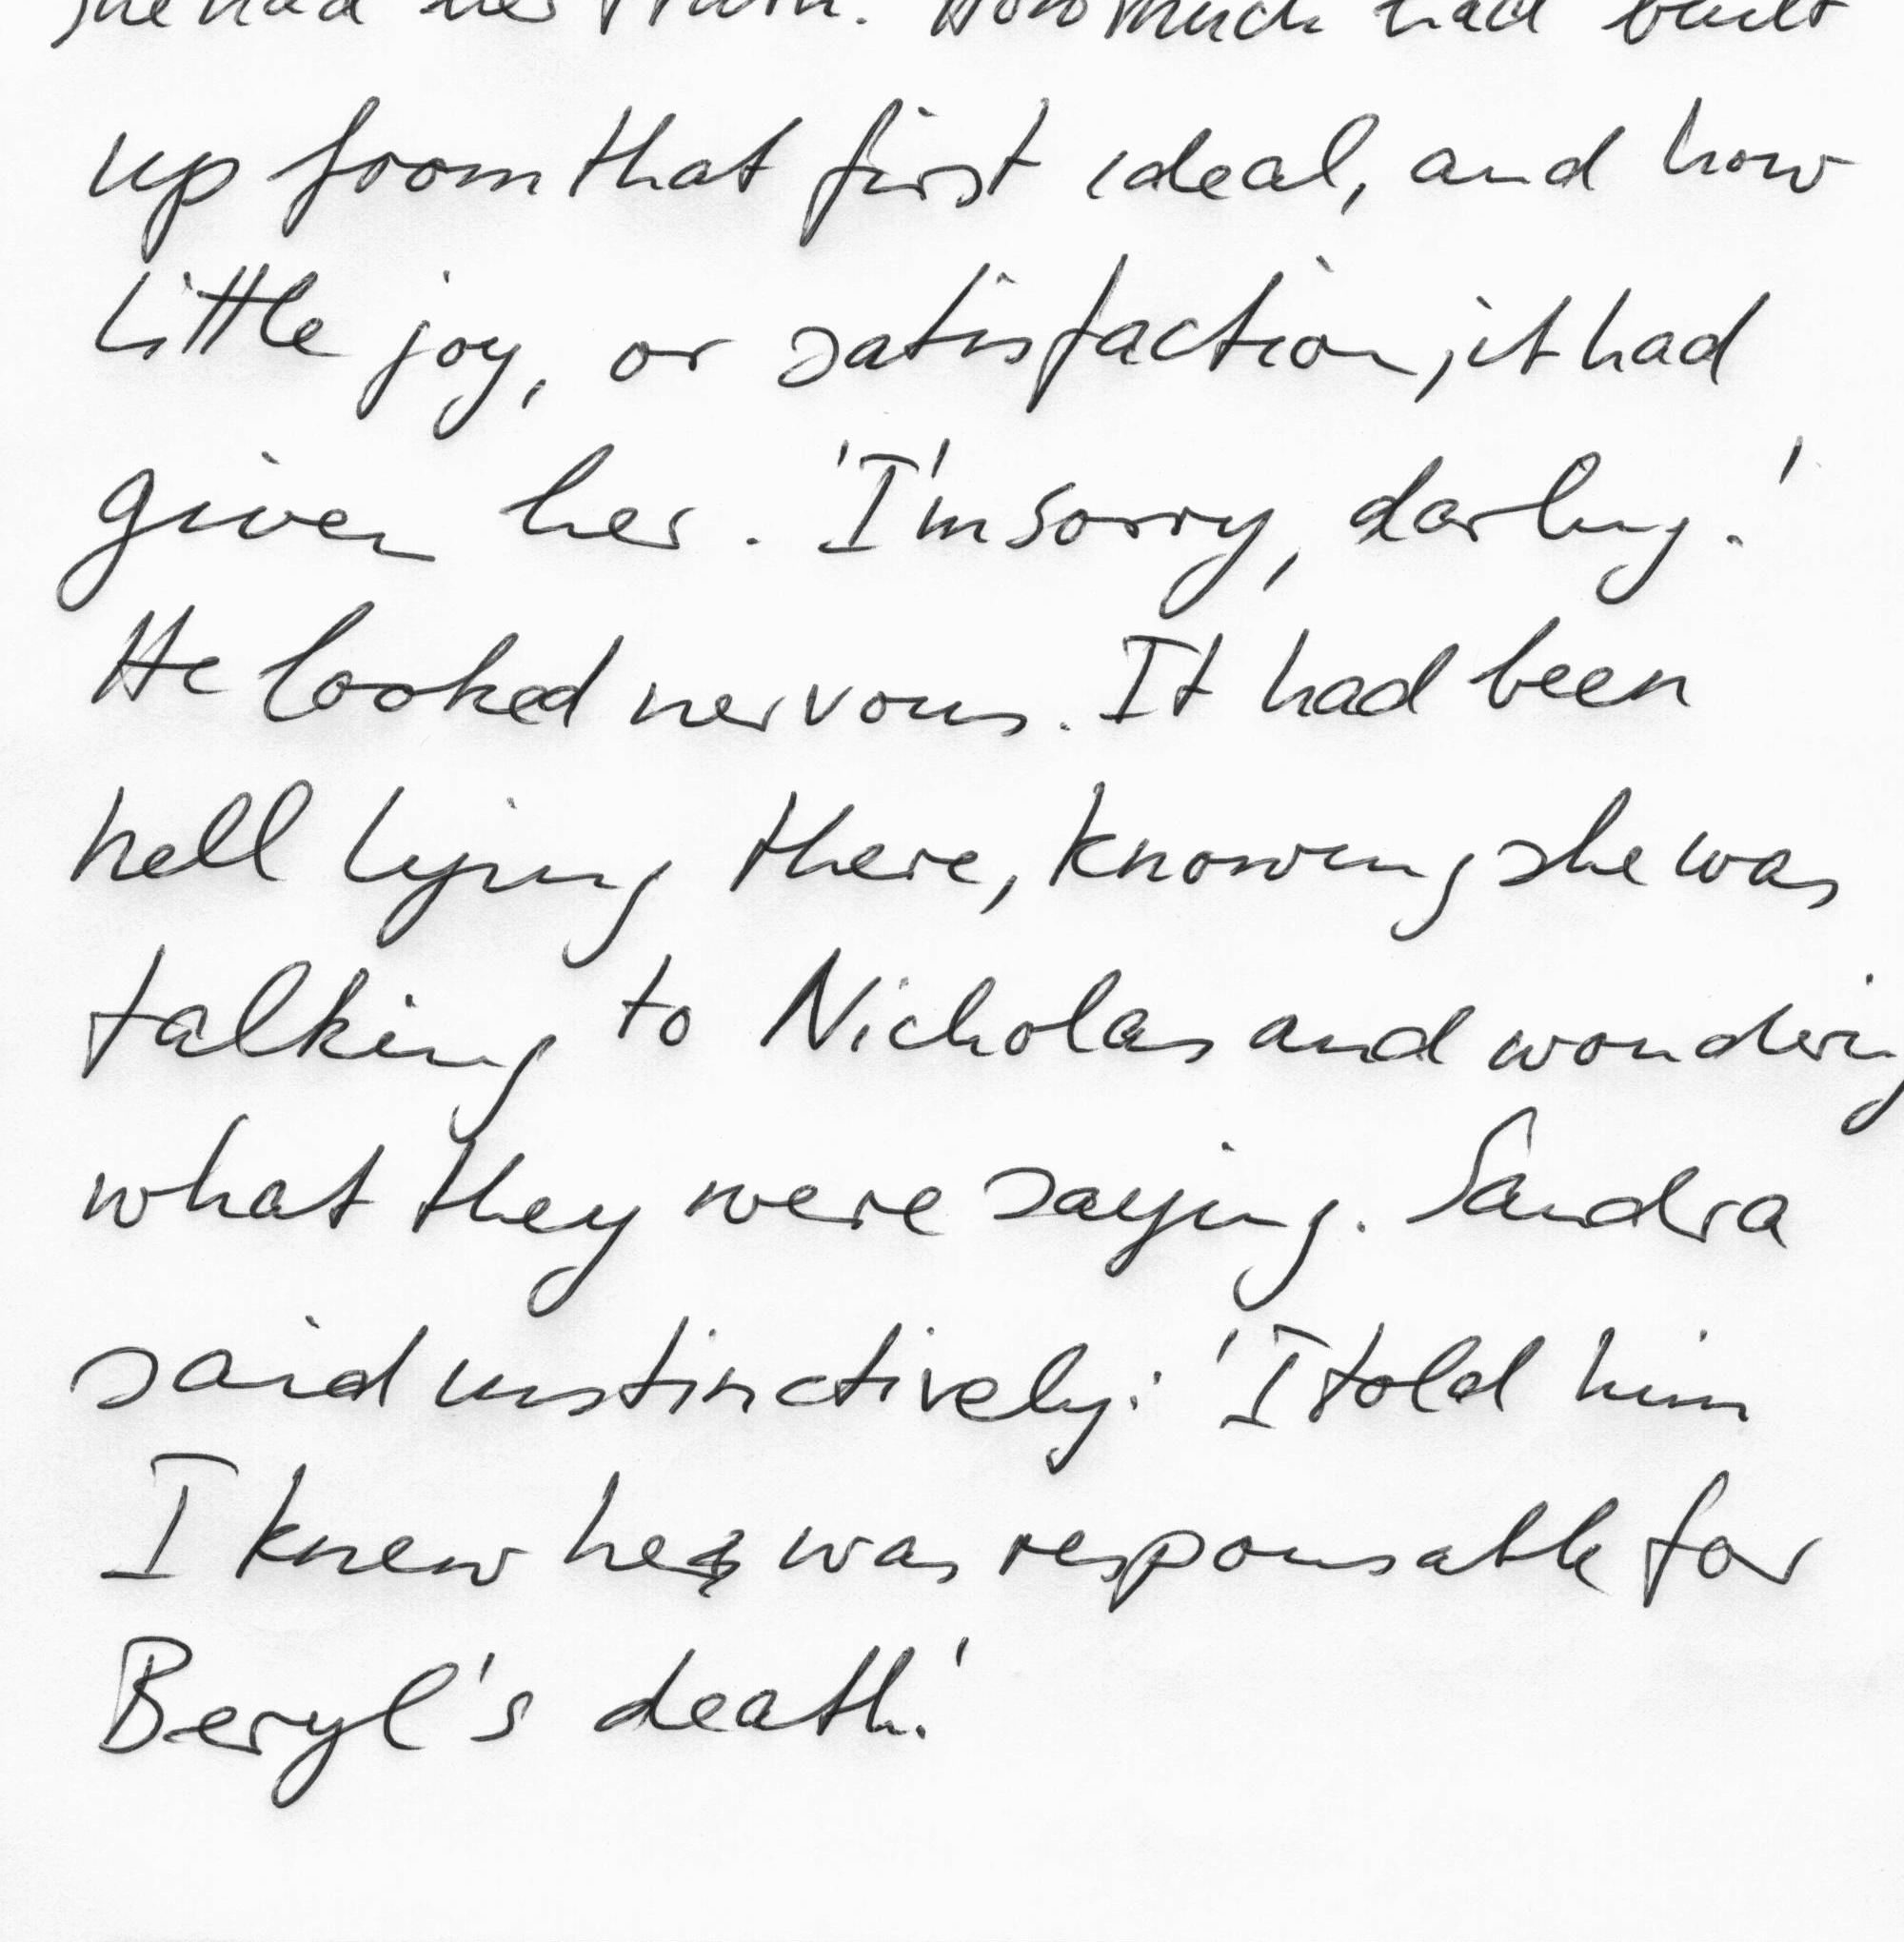 she had her truth. How much had built
up from that first ideal, and how
little joy, or satisfaction, it had
given her. 'I'm sorry, darling.'
He looked nervous. It had been
hell lying there, knowing she was
talking to Nicholas and wondering
what they were saying. Sandra
said instinctively: 'I told him
I knew he was responsable for
Beryl's death.'